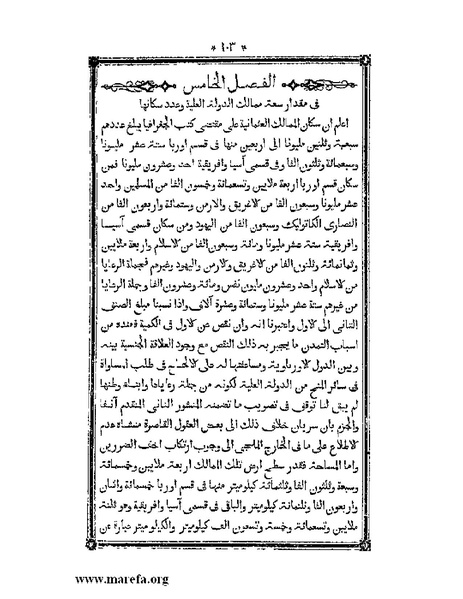 * ١٠٣ *
الفصل الخامس
فى مقدار سعة ممالك الدولة العلية وعدد سكانها
اعلم ان سكان الممالك العثمانية على مقتضى كتب الجغرافيا يبلغ عددهم
سبعة وثلثين مليونا الى اربعين منها فى قسم اوربا ستة عشر مليونا
وسبعمائة وثلثون الفا وفى قسمى آسيا وافريقية احد وعشرون مليونا فمن
سكان قسم اوربا اربعة ملايين وتسعمائة وخمسون الفا من المسلمين واحد
عشر مليونا وسبعون الفا من كلاغريق وكلارمن وستمائة واربعون الفا من
النصارى الكاتوليك وسبعون الفا من اليهود ومن سكان قسمى آسيا
وافريقية ستة عشر مليونا ومائة وسبعون الفا من كلاسلام واربعة ملايين
وثمانمائة وثلثون الفا من كلاغريق وكلارمن واليهود وغيرهم فجملة الرعايا
من كلاسلام واحد وعشرون مليون نفس ومائة وعشرون الفا وجملة الرعايا
من غيرهم ستة عشر مليونا وستمائة وعشرة آلاف واذا نسبنا مبلغ الصنف
الثانى الى كلاول واعتبرنا انه وان نقص عن كلاول فى الكمية فعنده من
اسباب التمدن ما يجبر به ذلك النقص مع وجود العلاقة الجنسية بينه
وبين الدول كلاورباوية ومساعفتها له على كلالحاح فى طلب المساواة
فى سائر المنح من الدولة العلية لكونه من جملة رعاياها وابناء وطنها
لم يبق لنا توقف فى تصويب ما تضمنه المنشور الثانى المتقدم آنفا
والجزم بان سريان خلاف ذلك الى بعض العقول القاصرة منشاه عدم
كلاطلاع على ما فى الخارج الملجى الى وجوب ارتكاب اخف الضررين
واما المساحة فقدر سطح ارض تلك الممالك اربعة ملايين وخمسمائة
وسبعة وثلثون الفا وثلثمائة كيلوميتر منها فى قسم اوربا خمسمائة واثنان
واربعون الفا وثلثمائة كيلوميتر والباقى فى قسمى آسيا وافريقية وهو ثلثة
ملايين وتسعمائة وخمسة وتسعون الف كيلوميتر والكيلوميتر عبارة عن
www.marefa.org